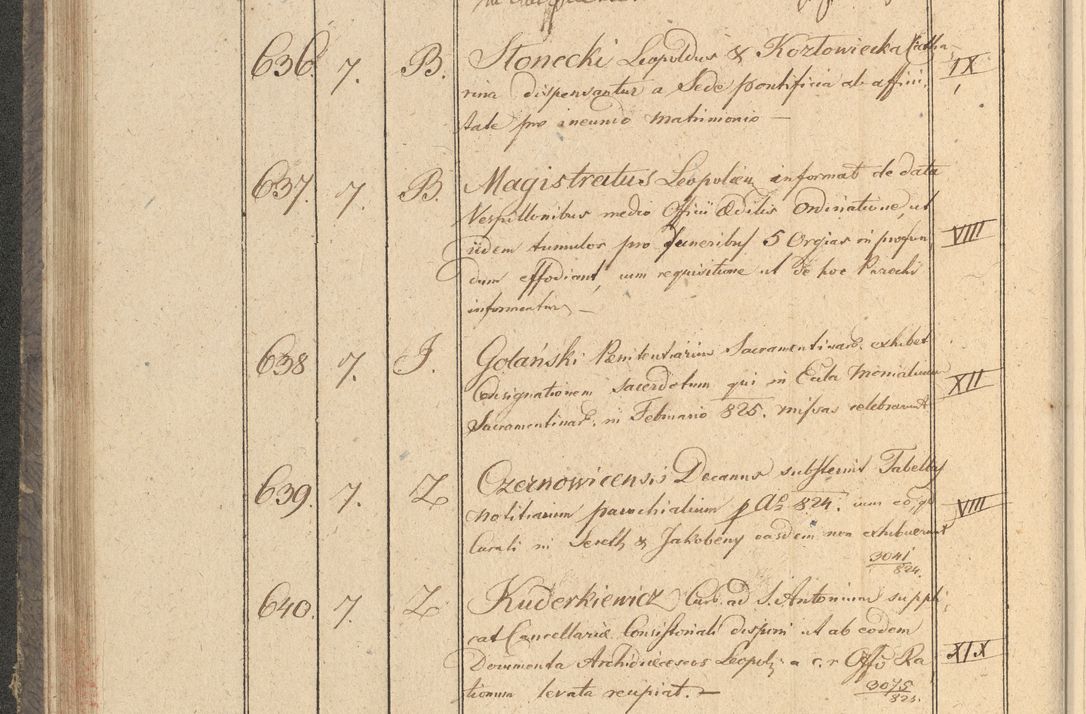 636. 7. B. Słonecki Leopoldus & Kozłowiecka Catha-
rina dispensantur a Sede pontificia ab affini-
tate pro ineundo Matrimonio — IX
637. 7. B. Magistratus Leopolien informat de data
Vespillonibus medio Officii Ædilis Ordinatione, ut
iidem tumulos pro funeribus 5 Orgias in profun-
dum effodiant, cum requisitione ut de hoc Parochi
informentur. — VIII
638 7. J. Golański Penitentiarius Sacramentinar. exhibet
Consignationem sacerdotum qui in Eccla Monialium
Sacramentinar. in Februario 825. missas celebrarunt XII
639. 7. Z Czernowicensis Decanus substernit Tabellas
notitiarum parochialium p Ao 824. cum eo, qd
Curati in Sereth & Jakobeny easdem non exhibuerunt VIII
3041/824.
640. 7. Z Kuderkiewicz Cur. ad S. Antonium suppli-
cat Cancellariæ Consistoriali disponi ut ab eodem
Documenta Archidiæceseos Leopol; a c. r. Offo Ra
tionum levata recipiat. — XIX
3075/825.